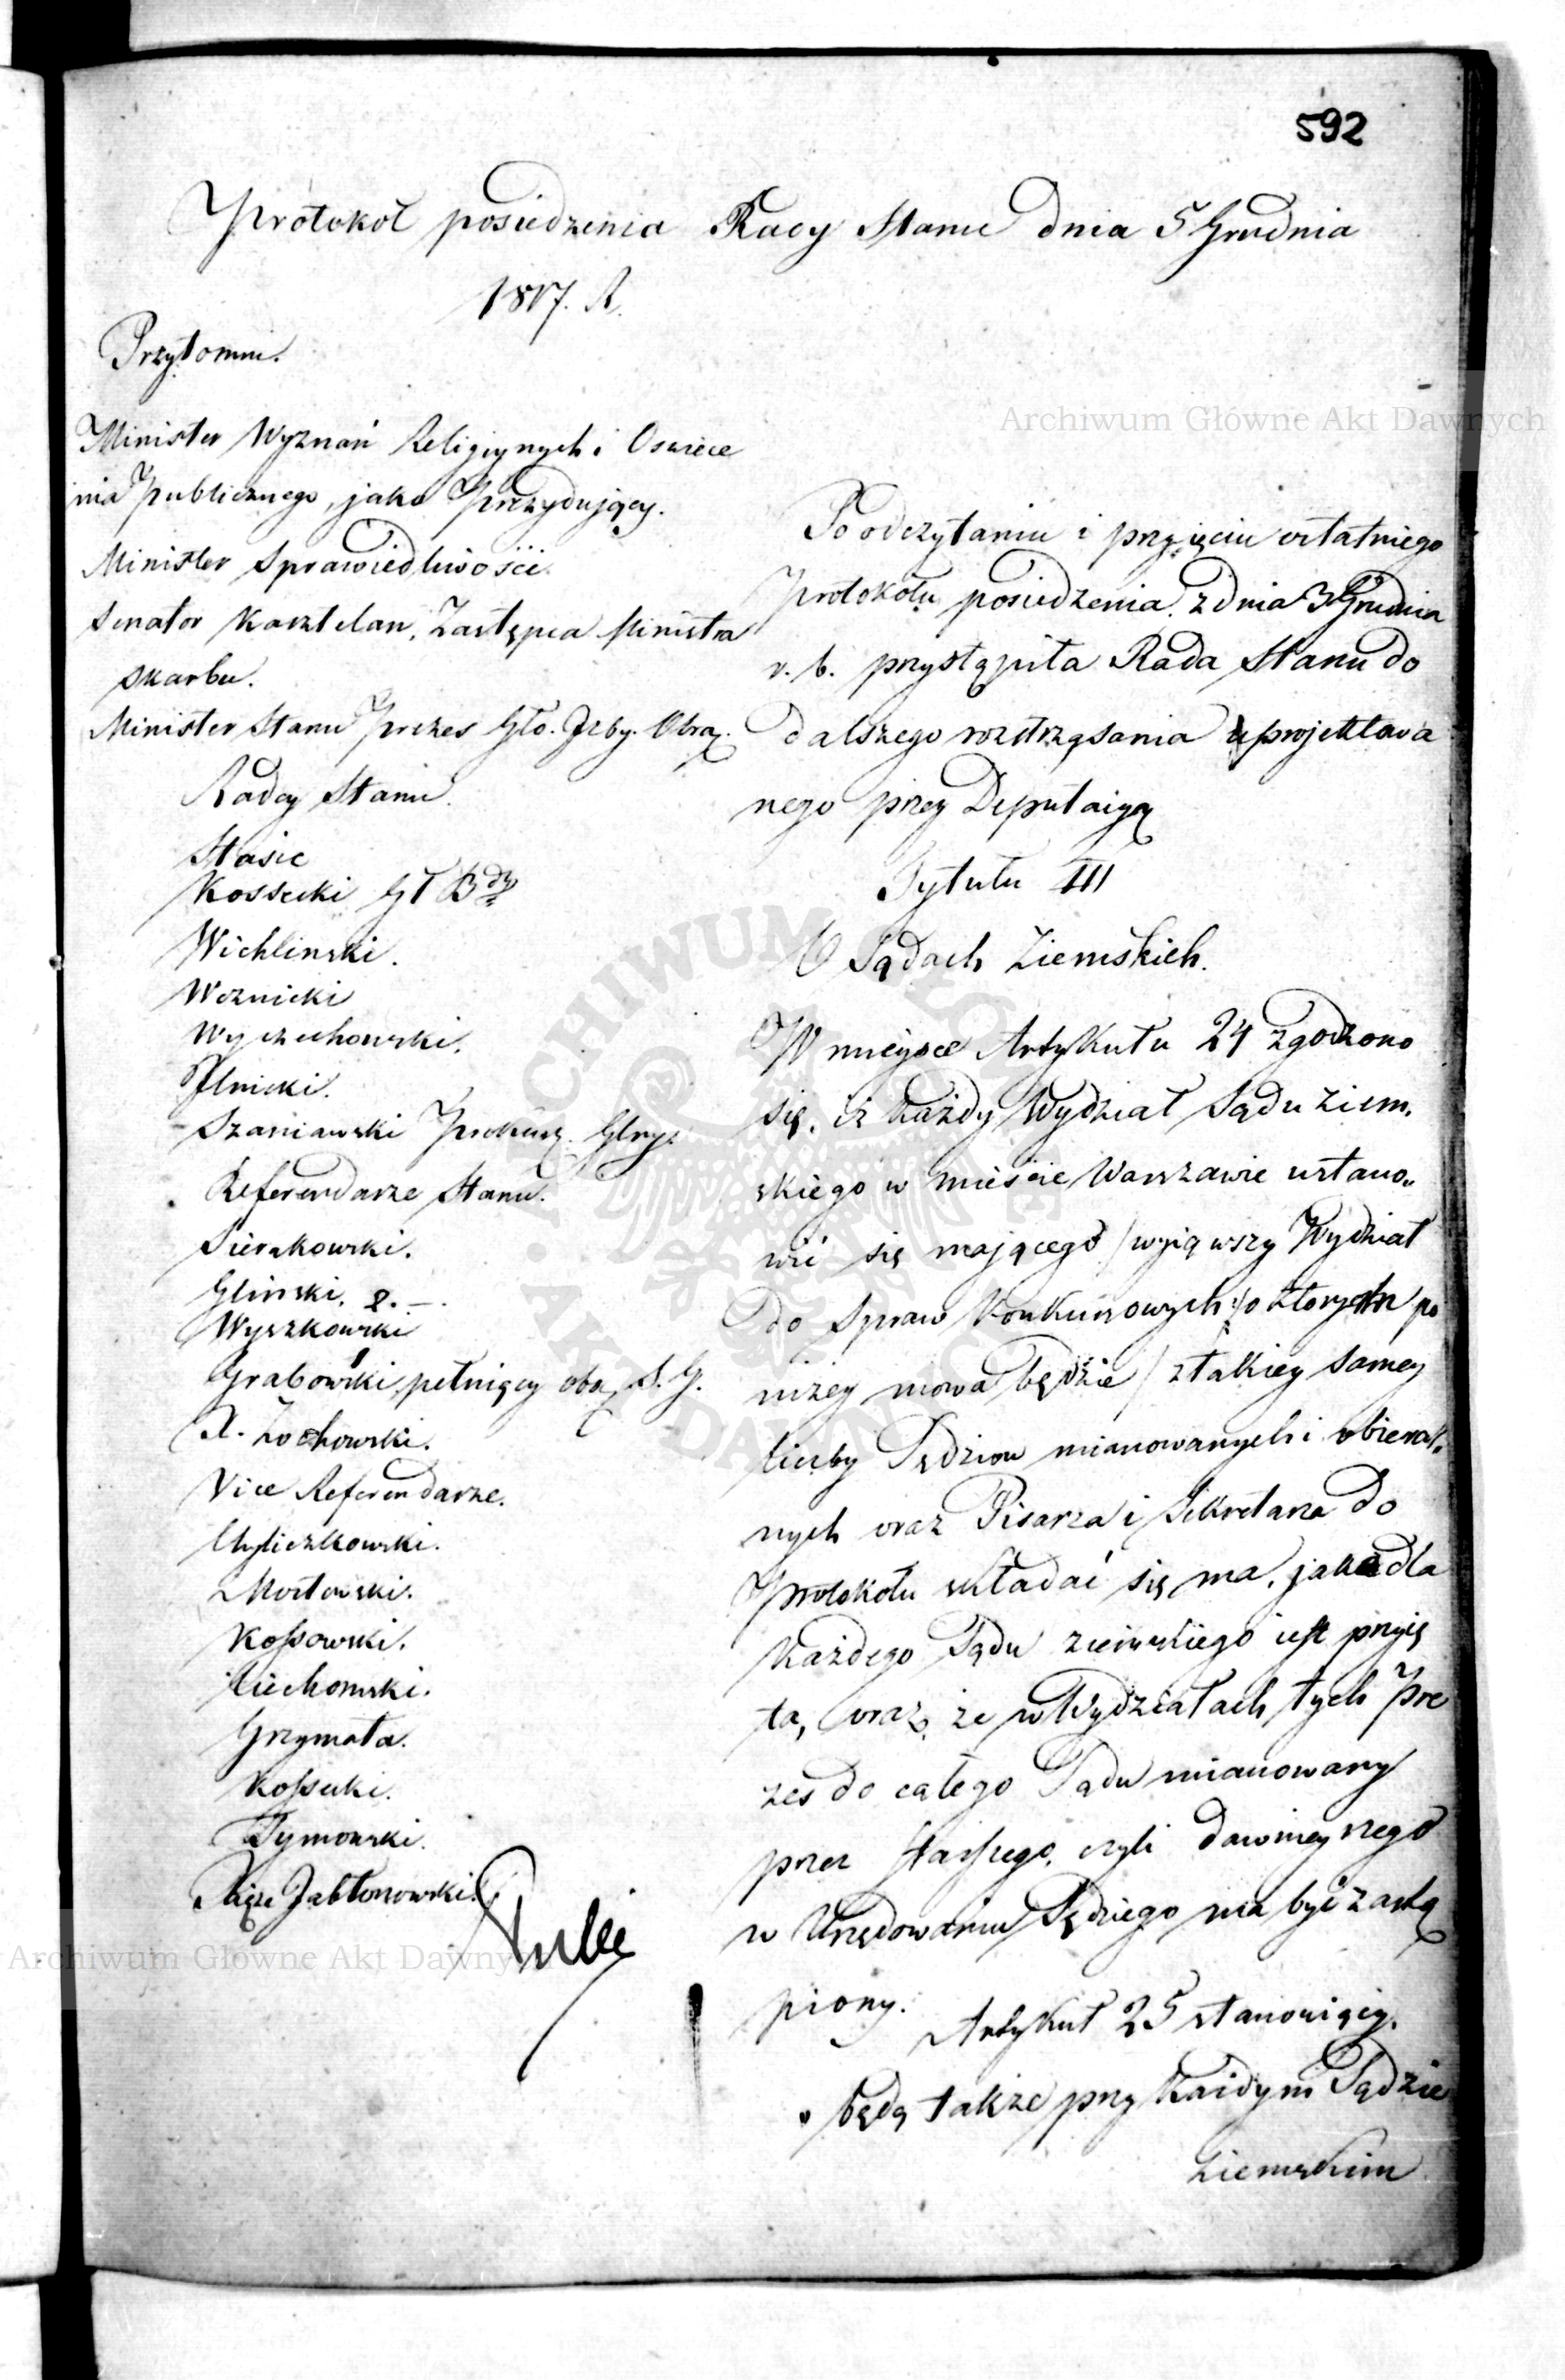 592
Protokół posiedzenia Rady Stanu dnia 5 Grudnia
1817. R.
Przytomni.
Minister Wyznań Religiynych i Oswiece
nia Publicznego, jako Prezydujący.
Minister Sprawiedliwości.
Senator Kasztelan, Zastępca Ministra
Skarbu.
Minister Stanu Prezes Głó. Izby. Obra.
Radcy Stanu.
Stasic
Kossecki
Wichlinski.
Woznicki
Wyczechowski.
Ilnicki.
Szaniawski Prokur. Glny.
Referendarze Stanu.
Sierakowski.
Glinski.
Wyszkowski
Grabowski pełniący obo. S. G.
X. Zochowski.
Vice Referendarze.
Chyliczkowski.
Mostowski.
Kossowski.
Ciechomski.
Grzymała.
Kossecki.
Tymowski.
Xiąże Jabłonowski.
Po odczytaniu i przyięciu ostatniego
Protokołu posiedzenia z dnia 3 Grudnia
r. b. przystąpiła Rada Stanu do
dalszego roztrząsania uprojektowa
nego przez Deputacyą
Tytułu III
O Sądach Ziemskich.
W mieysce Artykułu 24 zgodzono
się, iż każdy Wydział Sądu Ziem,
skiego w mieście Warszawie ustano„
wić się mającego /wyiąwszy Wydział
do Spraw Konkursowych, o ktorych po
niżey mowa będzie/ z takiey samey
liczby Sędziow mianowanych i obieral„
nych oraz Pisarza i Sekretarza do
Protokołu składać się ma, jaka dla
każdego Sądu ziemskiego iest przyię
ta, oraz, że w Wydziałach tych Pre
zes do całego Sądu mianowany
przez starszego, czyli dawniey szego
w Urzędowaniu Sędziego ma być zastą
piony.
Artykuł 25 stanowiący.
„będą także przy każdym Sądzie
Ziemskim
Archiwum Główne Akt Dawnych
ARCHIWUM GŁÓWNE AKT DAWNYCH
Archiwum Główne Akt Dawnych